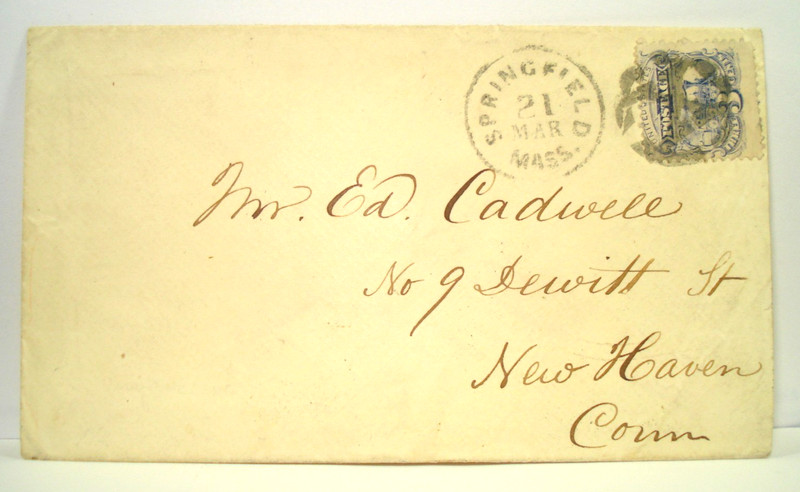 SPRINGFIELD
21
MAR
MASS.
POSTAGE
3
Mr. Ed. Cadwell
No 9 Dewitt St
New Haven
Conn